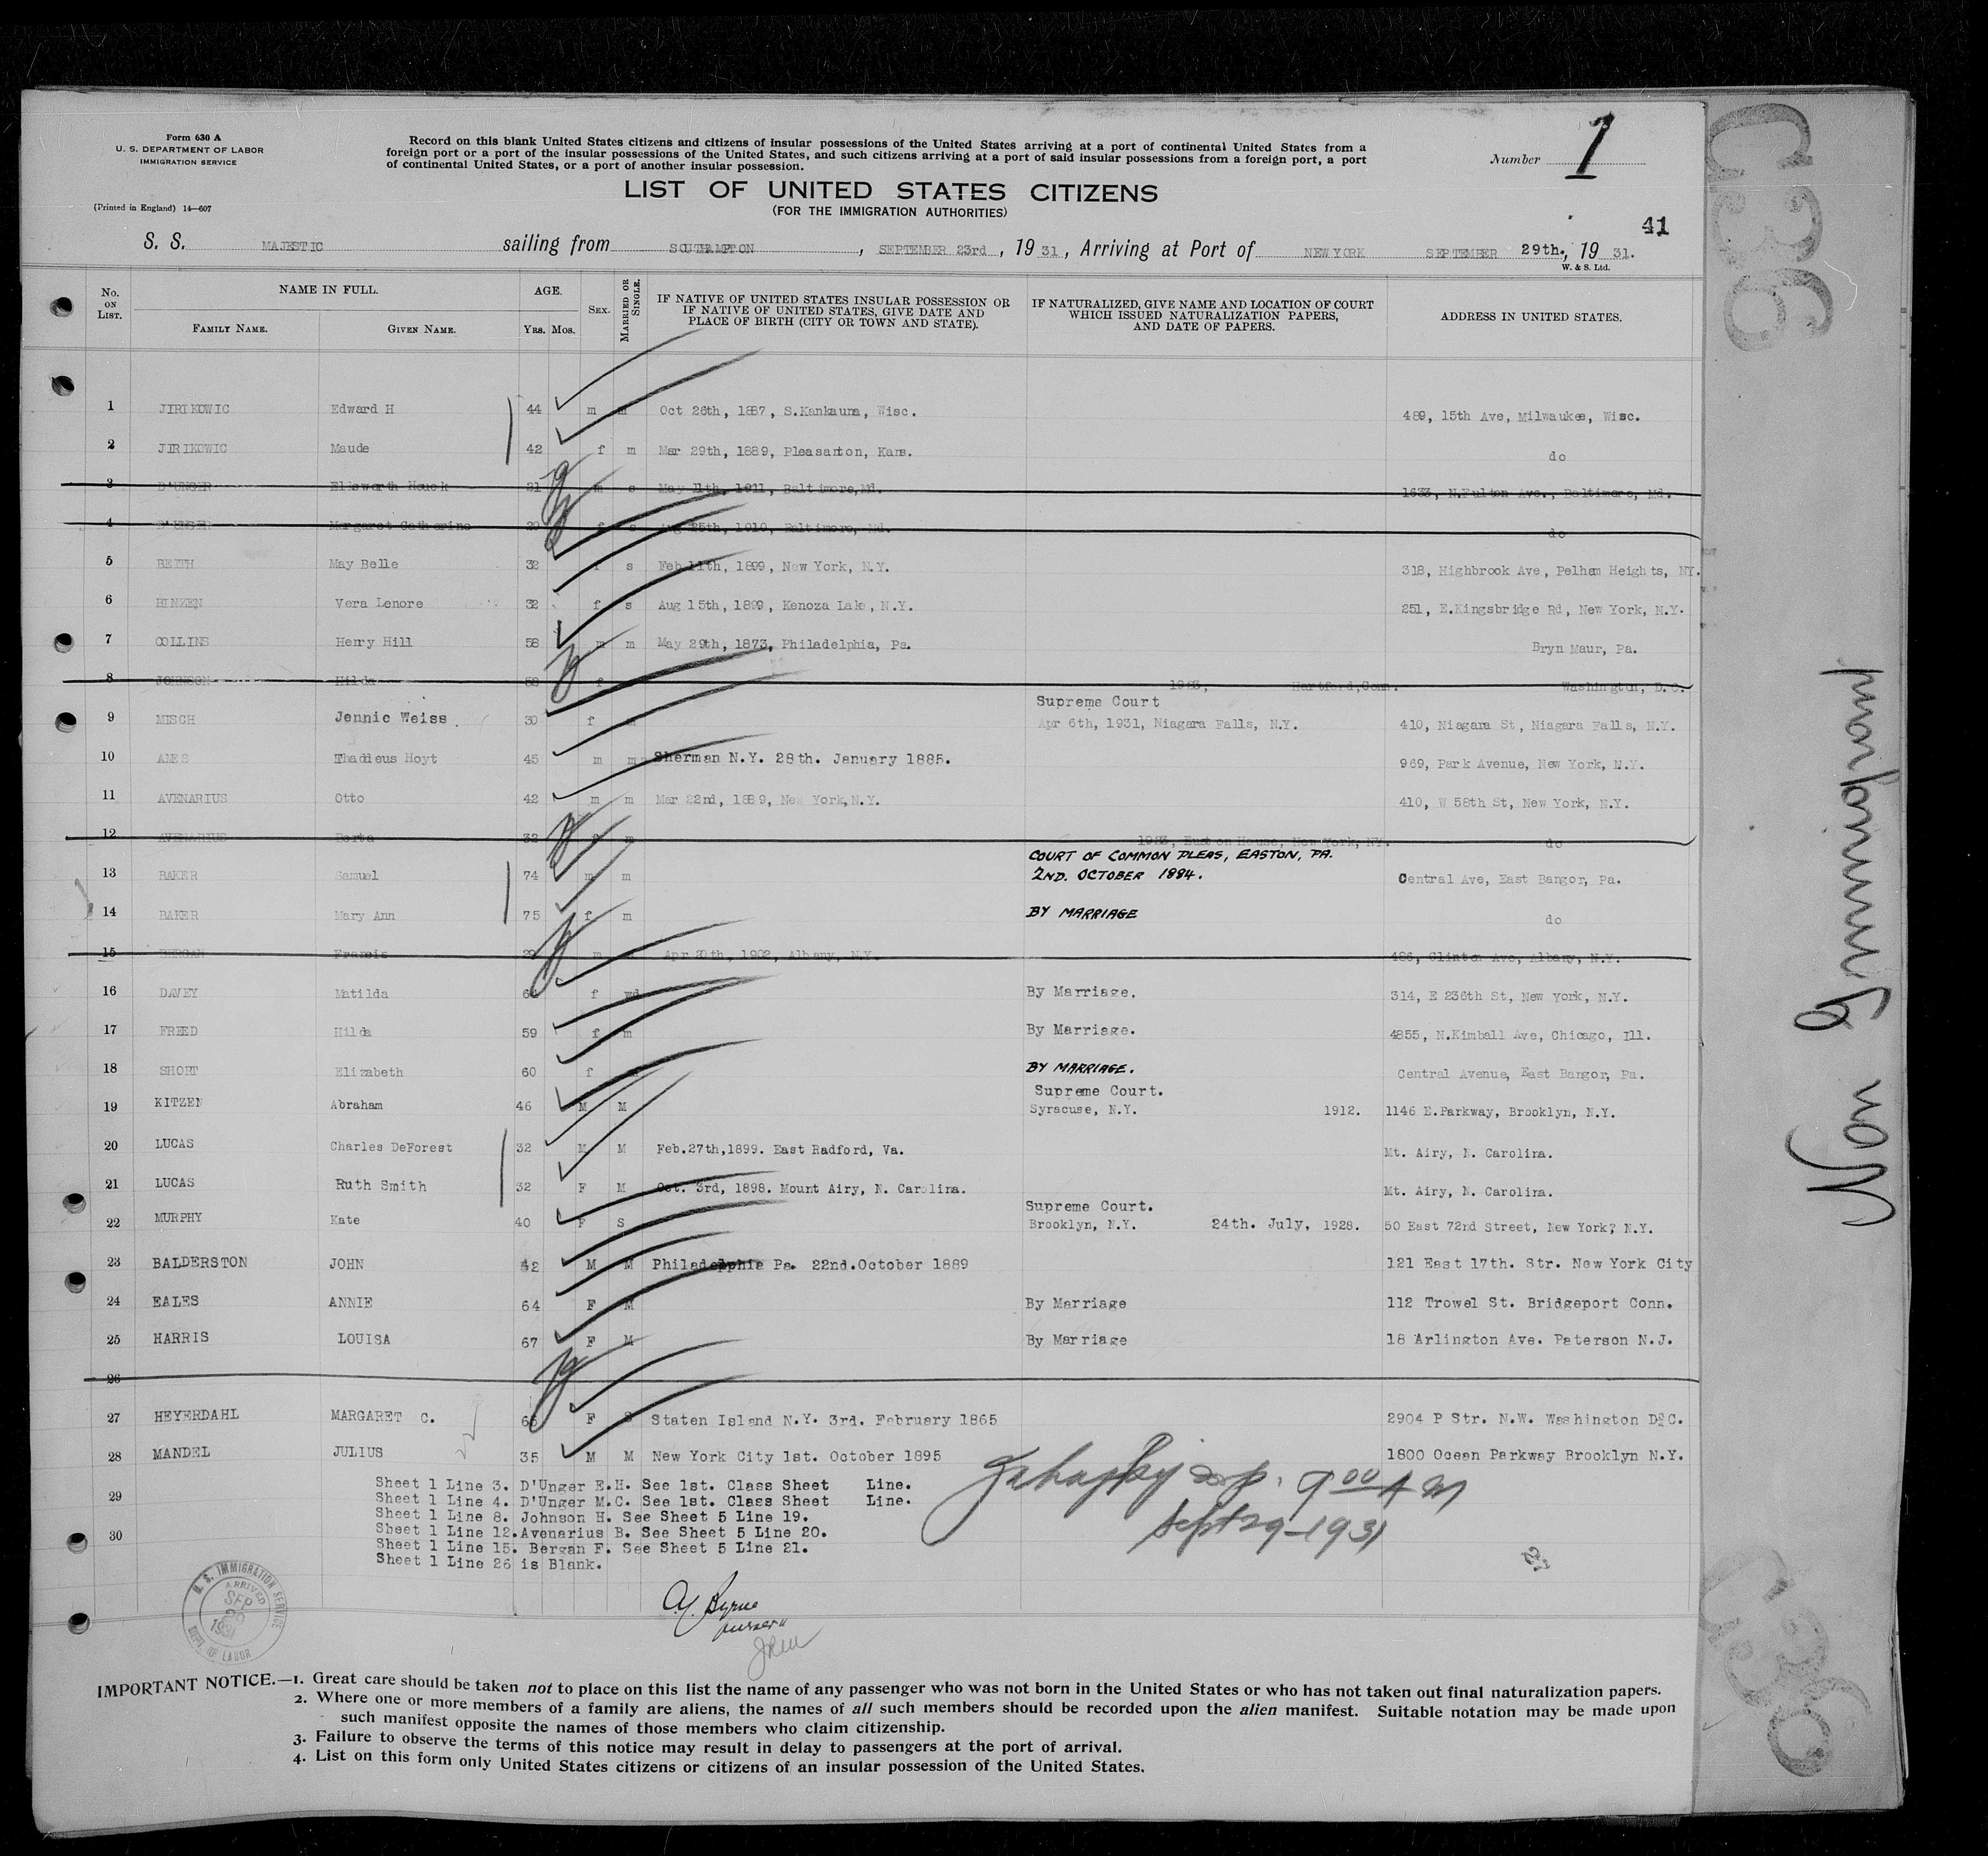 Form 630 A
U. S. DEPARTMENT OF LABOR
IMMIGRATION SERVICE
(Printed in England) 14—607
Record on this blank United States citizens and citizens of insular possessions of the United States arriving at a port of continental United States from a
foreign port or a port of the insular possessions of the United States, and such citizens arriving at a port of said insular possessions from a foreign port, a port
of continental United States, or a port of another insular possession.
Number 1
LIST OF UNITED STATES CITIZENS
(FOR THE IMMIGRATION AUTHORITIES)
41
S. S. MAJESTIC sailing from SOUTHAMPTON, SEPTEMBER 23rd, 19 31, Arriving at Port of NEW YORK SEPTEMBER 29th., 19 31.
W. & S. Ltd.
No. ON LIST. NAME IN FULL. FAMILY NAME. GIVEN NAME. AGE. YRS. MOS. SEX. MARRIED OR SINGLE. IF NATIVE OF UNITED STATES INSULAR POSSESSION OR IF NATIVE OF UNITED STATES, GIVE DATE AND PLACE OF BIRTH (CITY OR TOWN AND STATE). IF NATURALIZED, GIVE NAME AND LOCATION OF COURT WHICH ISSUED NATURALIZATION PAPERS, AND DATE OF PAPERS. ADDRESS IN UNITED STATES.
1 JIRIKOWIC Edward H 44 m m Oct 26th, 1887, S.Kankauna, Wisc. 489, 15th Ave, Milwaukee, Wisc.
2 JIRIKOWIC Maude 42 f m Mar 29th, 1889, Pleasanton, Kans. do
3 D'UNGER Ellsworth Houck 21 m s May 11th, 1911, Baltimore,Md. 1633, N.Fulton Ave., Baltimore, Md.
4 D'UNGER Margaret Catharine f s Aug 25th, 1910, Baltimore, Md. do
5 BEITH May Belle 32 f s Feb 11th, 1899, New York, N.Y. 318, Highbrook Ave, Pelham Heights, NY.
6 HINZEN Vera Lenore 32 f s Aug 15th, 1899, Kenoza Lake, N.Y. 251, E.Kingsbridge Rd, New York, N.Y.
7 COLLINS Henry Hill 58 m m May 29th, 1873, Philadelphia, Pa. Bryn Maur, Pa.
8 JOHNSON Hilda f Hartford,Conn. Washington, D.C.
Supreme Court
9 MISCH Jennie Weiss. 30 f m Apr 6th, 1931, Niagara Falls, N.Y. 410, Niagara St, Niagara Falls, N.Y.
10 AMES Thaddeus Hoyt 45 m m Sherman N.Y. 28th. January 1885. 969, Park Avenue, New York, N.Y.
11 AVENARIUS Otto 42 m m Mar 22nd, 1889, New York,N.Y. 410, W 58th St, New York, N.Y.
12 AVENARIUS Berta 32 f m Easton House, New York, NY. do
COURT OF COMMON PLEAS, EASTON, PA.
13 BAKER Samuel 74 m m 2ND. OCTOBER 1884. Central Ave, East Bangor, Pa.
14 BAKER Mary Ann 75 f m BY MARRIAGE do
15 BERGAN Francis 29 m Apr 20th, 1902, Albany, N.Y. 486, Clinton Ave, Albany, N.Y.
16 DAVEY Matilda 64 f wd By Marriage. 314, E 236th St, New York, N.Y.
17 FREED Hilda 59 f m By Marriage. 4855, N.Kimball Ave, Chicago, Ill.
18 SHORT Elizabeth 60 f BY MARRIAGE. Central Avenue, East Bangor, Pa.
Supreme Court.
19 KITZEN Abraham 46 M M Syracuse, N.Y. 1912. 1146 E.Parkway, Brooklyn, N.Y.
20 LUCAS Charles DeForest 32 M M Feb.27th,1899. East Radford, Va. Mt. Airy, N. Carolina.
21 LUCAS Ruth Smith 32 F M Oct. 3rd, 1898. Mount Airy, N. Carolina. Mt. Airy, N. Carolina.
Supreme Court.
22 MURPHY Kate 40 F S Brooklyn, N.Y. 24th. July, 1928. 50 East 72nd Street, New York, N.Y.
23 BALDERSTON JOHN 42 M M Philadelphia Pa. 22nd.October 1889 121 East 17th. Str. New York City
24 EALES ANNIE 64 F M By Marriage 112 Trowel St. Bridgeport Conn.
25 HARRIS LOUISA 67 F M By Marriage 18 Arlington Ave. Paterson N.J.
26
27 HEYERDAHL MARGARET C. 66 F S Staten Island N.Y. 3rd. February 1865 2904 P Str. N.W. Washington D.C.
28 MANDEL JULIUS 35 M M New York City 1st. October 1895 1800 Ocean Parkway Brooklyn N.Y.
29
30
Sheet 1 Line 3. D'Unger E.H. See 1st. Class Sheet Line.
Sheet 1 Line 4. D'Unger M.C. See 1st. Class Sheet Line.
Sheet 1 Line 8. Johnson H. See Sheet 5 Line 19.
Sheet 1 Line 12.Avenarius B. See Sheet 5 Line 20.
Sheet 1 Line 15. Bergan F. See Sheet 5 Line 21.
Sheet 1 Line 26 is Blank.
9 00 AM
Sept 29-1931
23
U. S. IMMIGRATION SERVICE
ARRIVED
SEP
29
1931
DEPT. OF LABOR
A.J. Byrne
purser
IMPORTANT NOTICE.—1. Great care should be taken not to place on this list the name of any passenger who was not born in the United States or who has not taken out final naturalization papers.
2. Where one or more members of a family are aliens, the names of all such members should be recorded upon the alien manifest. Suitable notation may be made upon
such manifest opposite the names of those members who claim citizenship.
3. Failure to observe the terms of this notice may result in delay to passengers at the port of arrival.
4. List on this form only United States citizens or citizens of an insular possession of the United States.
Non Immigrant